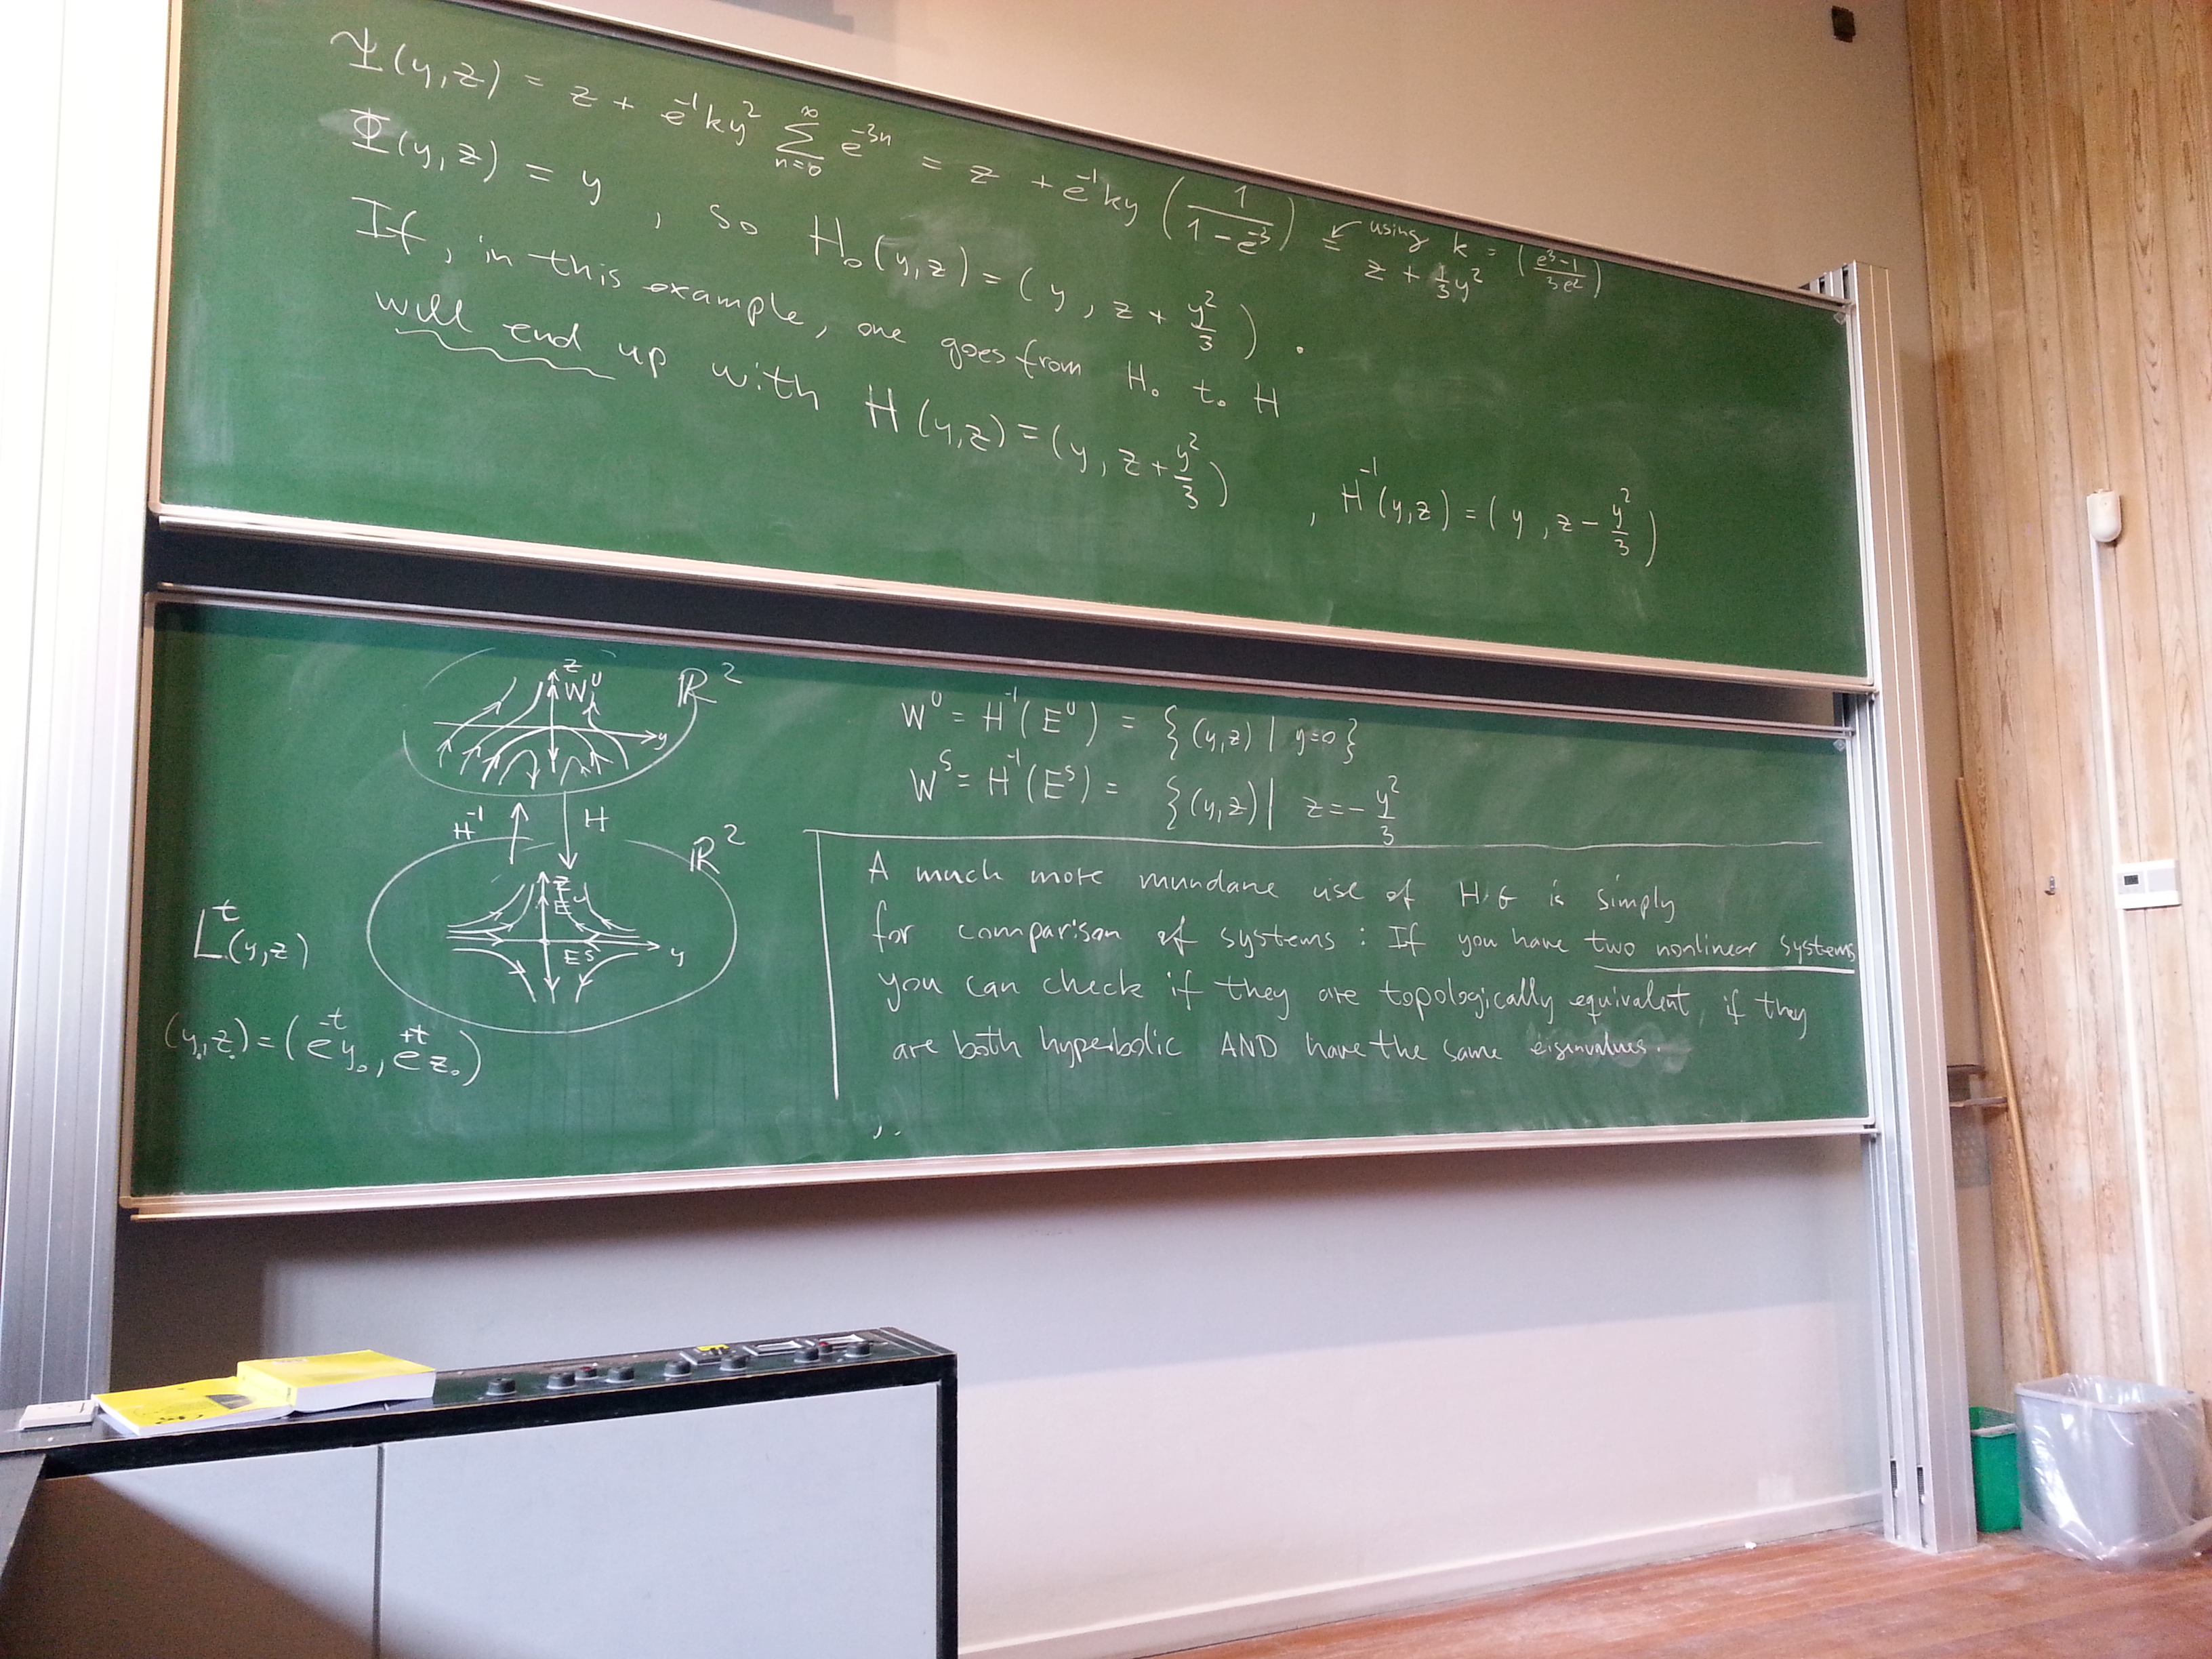 Ψ(y,z) = z + e⁻¹ky² ∑_{n=0}^{∞} e⁻³ⁿ = z + e⁻¹ky (1/(1-e⁻³)) = z + 1/3 y² using k = ((e³-1)/(3e²))
Φ(y,z) = y , so H₀(y,z) = (y, z + y²/3).
If, in this example, one goes from H₀ to H
will end up with H(y,z) = (y, z + y²/3) , H⁻¹(y,z) = (y, z - y²/3)
z
Wᵁ
ℝ²
y
H⁻¹
H
ℝ²
z
Eᵁ
Eˢ
y
Lᵗ(y,z)
(y₀,z₀) = (e⁻ᵗy₀, e⁺ᵗz₀)
Wᵁ = H⁻¹(Eᵁ) = {(y,z) | y=0}
Wˢ = H⁻¹(Eˢ) = {(y,z) | z = - y²/3
A much more mundane use of H.G is simply
for comparison of systems : If you have two nonlinear systems
you can check if they are topologically equivalent, if they
are both hyperbolic AND have the same eigenvalues.